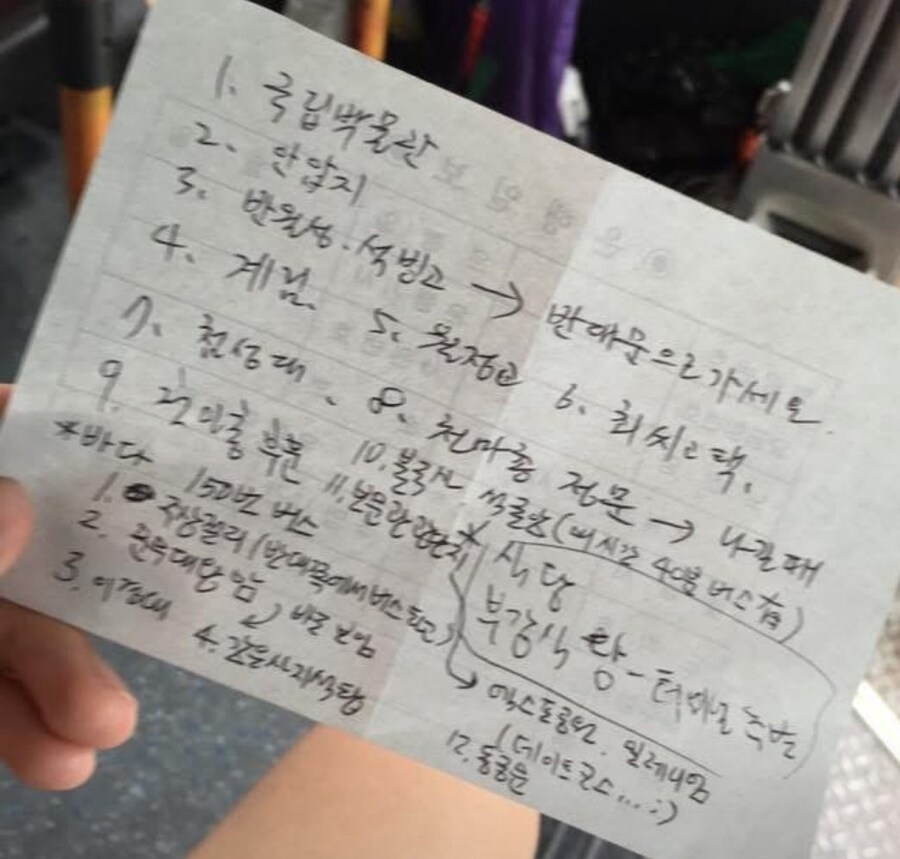 1. 국립박물관
2. 안압지
3. 반월성. 석빙고 → 반대문으로 가세요.
4. 계림. 5. 월정교 6. 최씨고택.
7. 첨성대. 8. 천마총 정문 → 나갈때
9. 고미술 부문 10. 불국사 석굴암 (매시간 40분 버스有)
*바다 150번 버스 11. 보문관광단지
1. 주상절리 (반대쪽에서 버스타고)
2. 문무대왕 암 바로 보임
3. 이견대 4. 감은사지석탑
* 식당
부강식당 - 터미널 옆
→ 엑스포공원. 밀레니엄
(데이트코스... :)
12. 동궁원